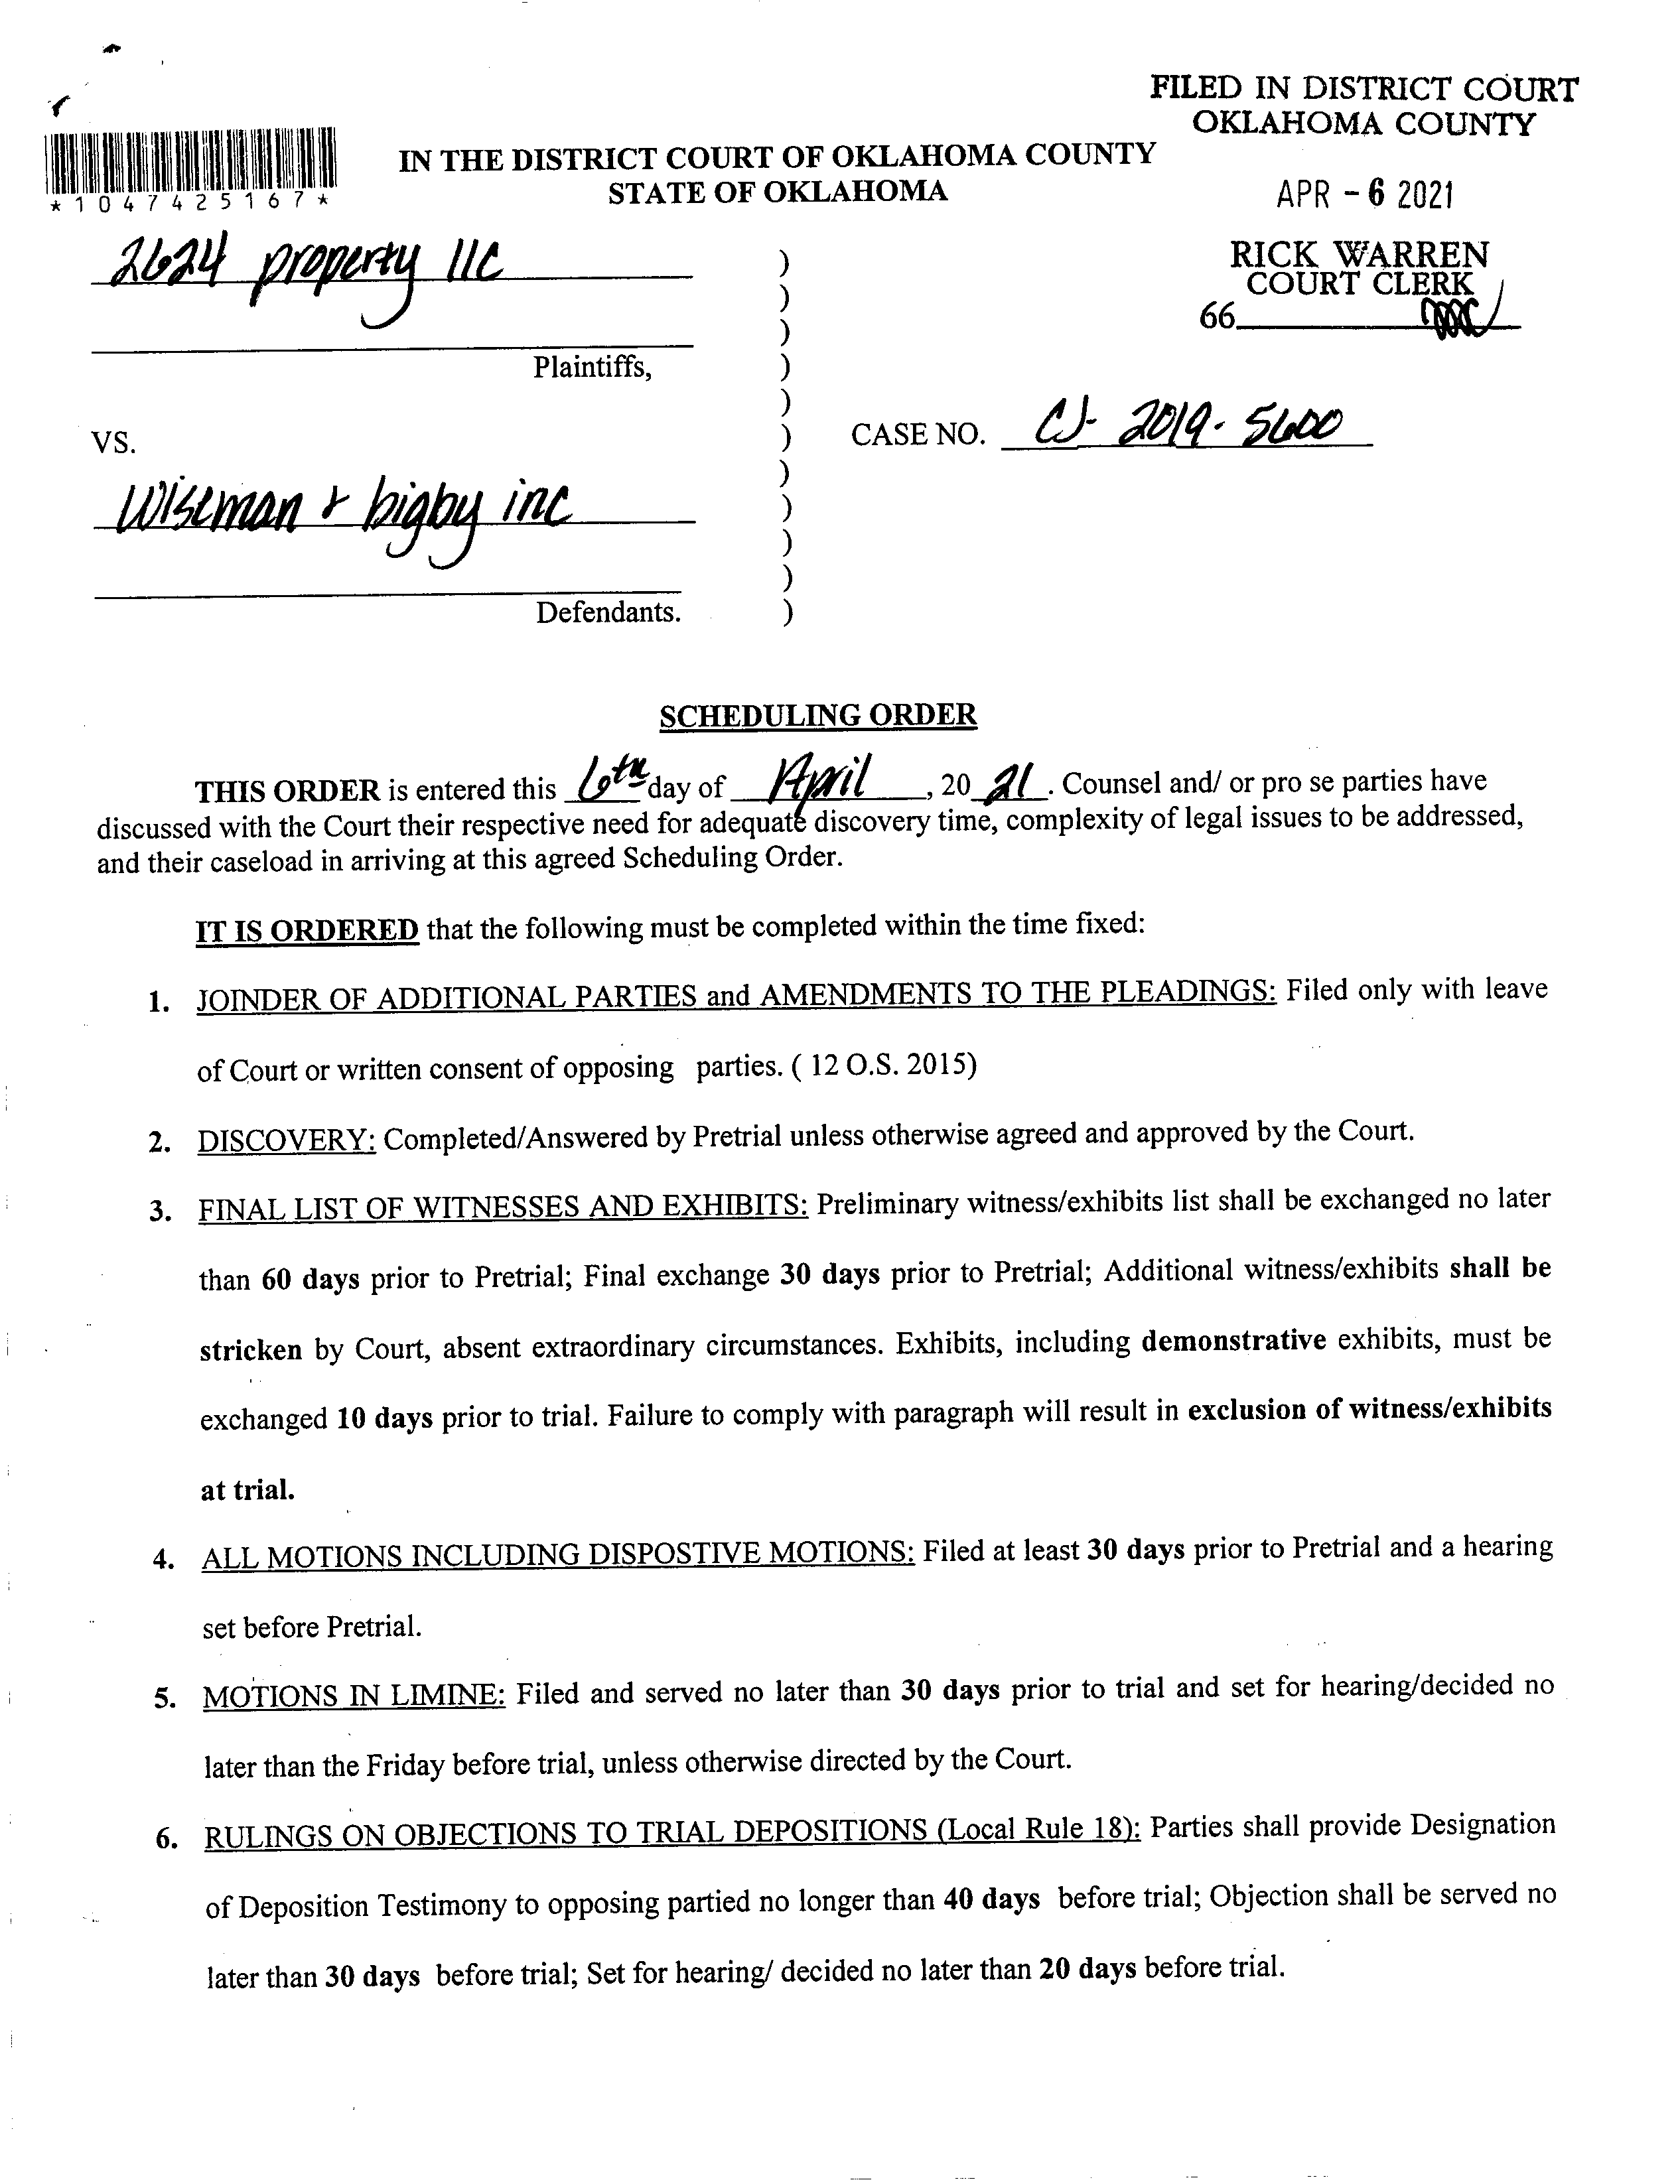 FILED IN DISTRICT COURT
OKLAHOMA COUNTY
IN THE DISTRICT COURT OF OKLAHOMA COUNTY
STATE OF OKLAHOMA
*1047425167*
APR - 6 2021
RICK WARREN
COURT CLERK
66
2624 property llc
)
)
)
Plaintiffs, )
)
VS. ) CASE NO. CJ- 2019- 5600
)
Wiseman & bigby inc )
)
)
Defendants. )
SCHEDULING ORDER
THIS ORDER is entered this 6th day of April, 20 21. Counsel and/ or pro se parties have
discussed with the Court their respective need for adequate discovery time, complexity of legal issues to be addressed,
and their caseload in arriving at this agreed Scheduling Order.
IT IS ORDERED that the following must be completed within the time fixed:
1. JOINDER OF ADDITIONAL PARTIES and AMENDMENTS TO THE PLEADINGS: Filed only with leave
of Court or written consent of opposing parties. ( 12 O.S. 2015)
2. DISCOVERY: Completed/Answered by Pretrial unless otherwise agreed and approved by the Court.
3. FINAL LIST OF WITNESSES AND EXHIBITS: Preliminary witness/exhibits list shall be exchanged no later
than 60 days prior to Pretrial; Final exchange 30 days prior to Pretrial; Additional witness/exhibits shall be
stricken by Court, absent extraordinary circumstances. Exhibits, including demonstrative exhibits, must be
exchanged 10 days prior to trial. Failure to comply with paragraph will result in exclusion of witness/exhibits
at trial.
4. ALL MOTIONS INCLUDING DISPOSTIVE MOTIONS: Filed at least 30 days prior to Pretrial and a hearing
set before Pretrial.
5. MOTIONS IN LIMINE: Filed and served no later than 30 days prior to trial and set for hearing/decided no
later than the Friday before trial, unless otherwise directed by the Court.
6. RULINGS ON OBJECTIONS TO TRIAL DEPOSITIONS (Local Rule 18): Parties shall provide Designation
of Deposition Testimony to opposing partied no longer than 40 days before trial; Objection shall be served no
later than 30 days before trial; Set for hearing/ decided no later than 20 days before trial.